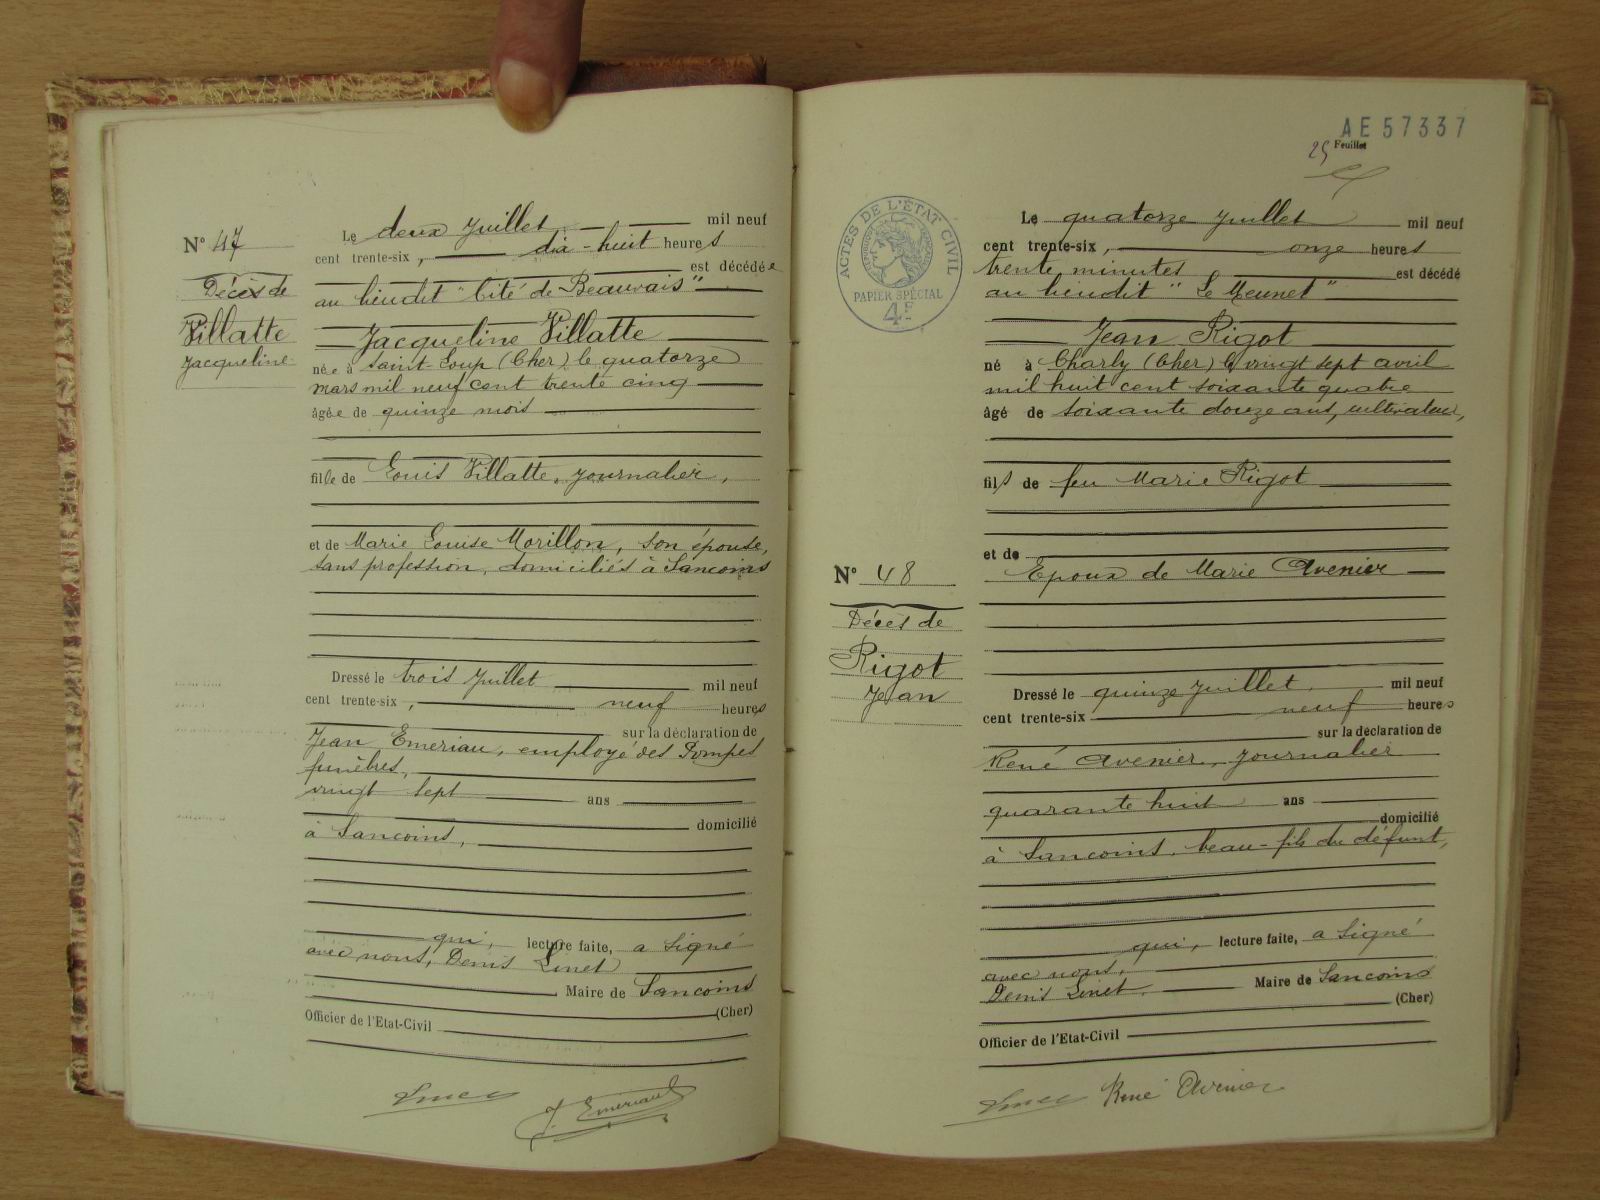 N° 47
Décès de
Villatte
Jacqueline
Le deux Juillet mil neuf
cent trente-six, dix-huit heures
est décédée
au lieudit "Cité de Beauvais"
Jacqueline Villatte
née à Saint-Loup (Cher) le quatorze
mars mil neuf cent trente cinq
âgée de quinze mois
fille de Louis Villatte, journalier,
et de Marie Louise Morillon, son épouse,
sans profession, domiciliés à Sancoins
Dressé le trois Juillet mil neuf
cent trente-six, neuf heures
sur la déclaration de
Jean Emeriau, employé des Pompes
funèbres,
vingt sept ans
domicilié
à Sancoins,
qui, lecture faite, a signé
avec nous, Denis Linet
Maire de Sancoins
(Cher)
Officier de l'Etat-Civil
Linet
J. Emeriau
AE 57337
25 Feuillet
ACTES DE L'ÉTAT CIVIL
PAPIER SPÉCIAL
4F
Le quatorze Juillet mil neuf
cent trente-six, onze heures
trente minutes est décédé
au lieudit "Le Meunet"
Jean Rigot
né à Charly (Cher) le vingt sept avril
mil huit cent soixante quatre
âgé de soixante douze ans, cultivateur,
fils de feu Marie Rigot
et de
Epoux de Marie Avenier
N° 48
Décès de
Rigot
Jean
Dressé le quinze Juillet, mil neuf
cent trente-six neuf heures
sur la déclaration de
René Avenier, journalier
quarante huit ans
domicilié
à Sancoins, beau-fils du défunt,
qui, lecture faite, a signé
avec nous,
Denis Linet Maire de Sancoins
(Cher)
Officier de l'Etat-Civil
Linet René Avenier